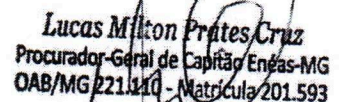 Lucas Milton Prates Cruz
Procurador-Geral de Capitão Enéas-MG
OAB/MG 221.110 - Matrícula 201.593